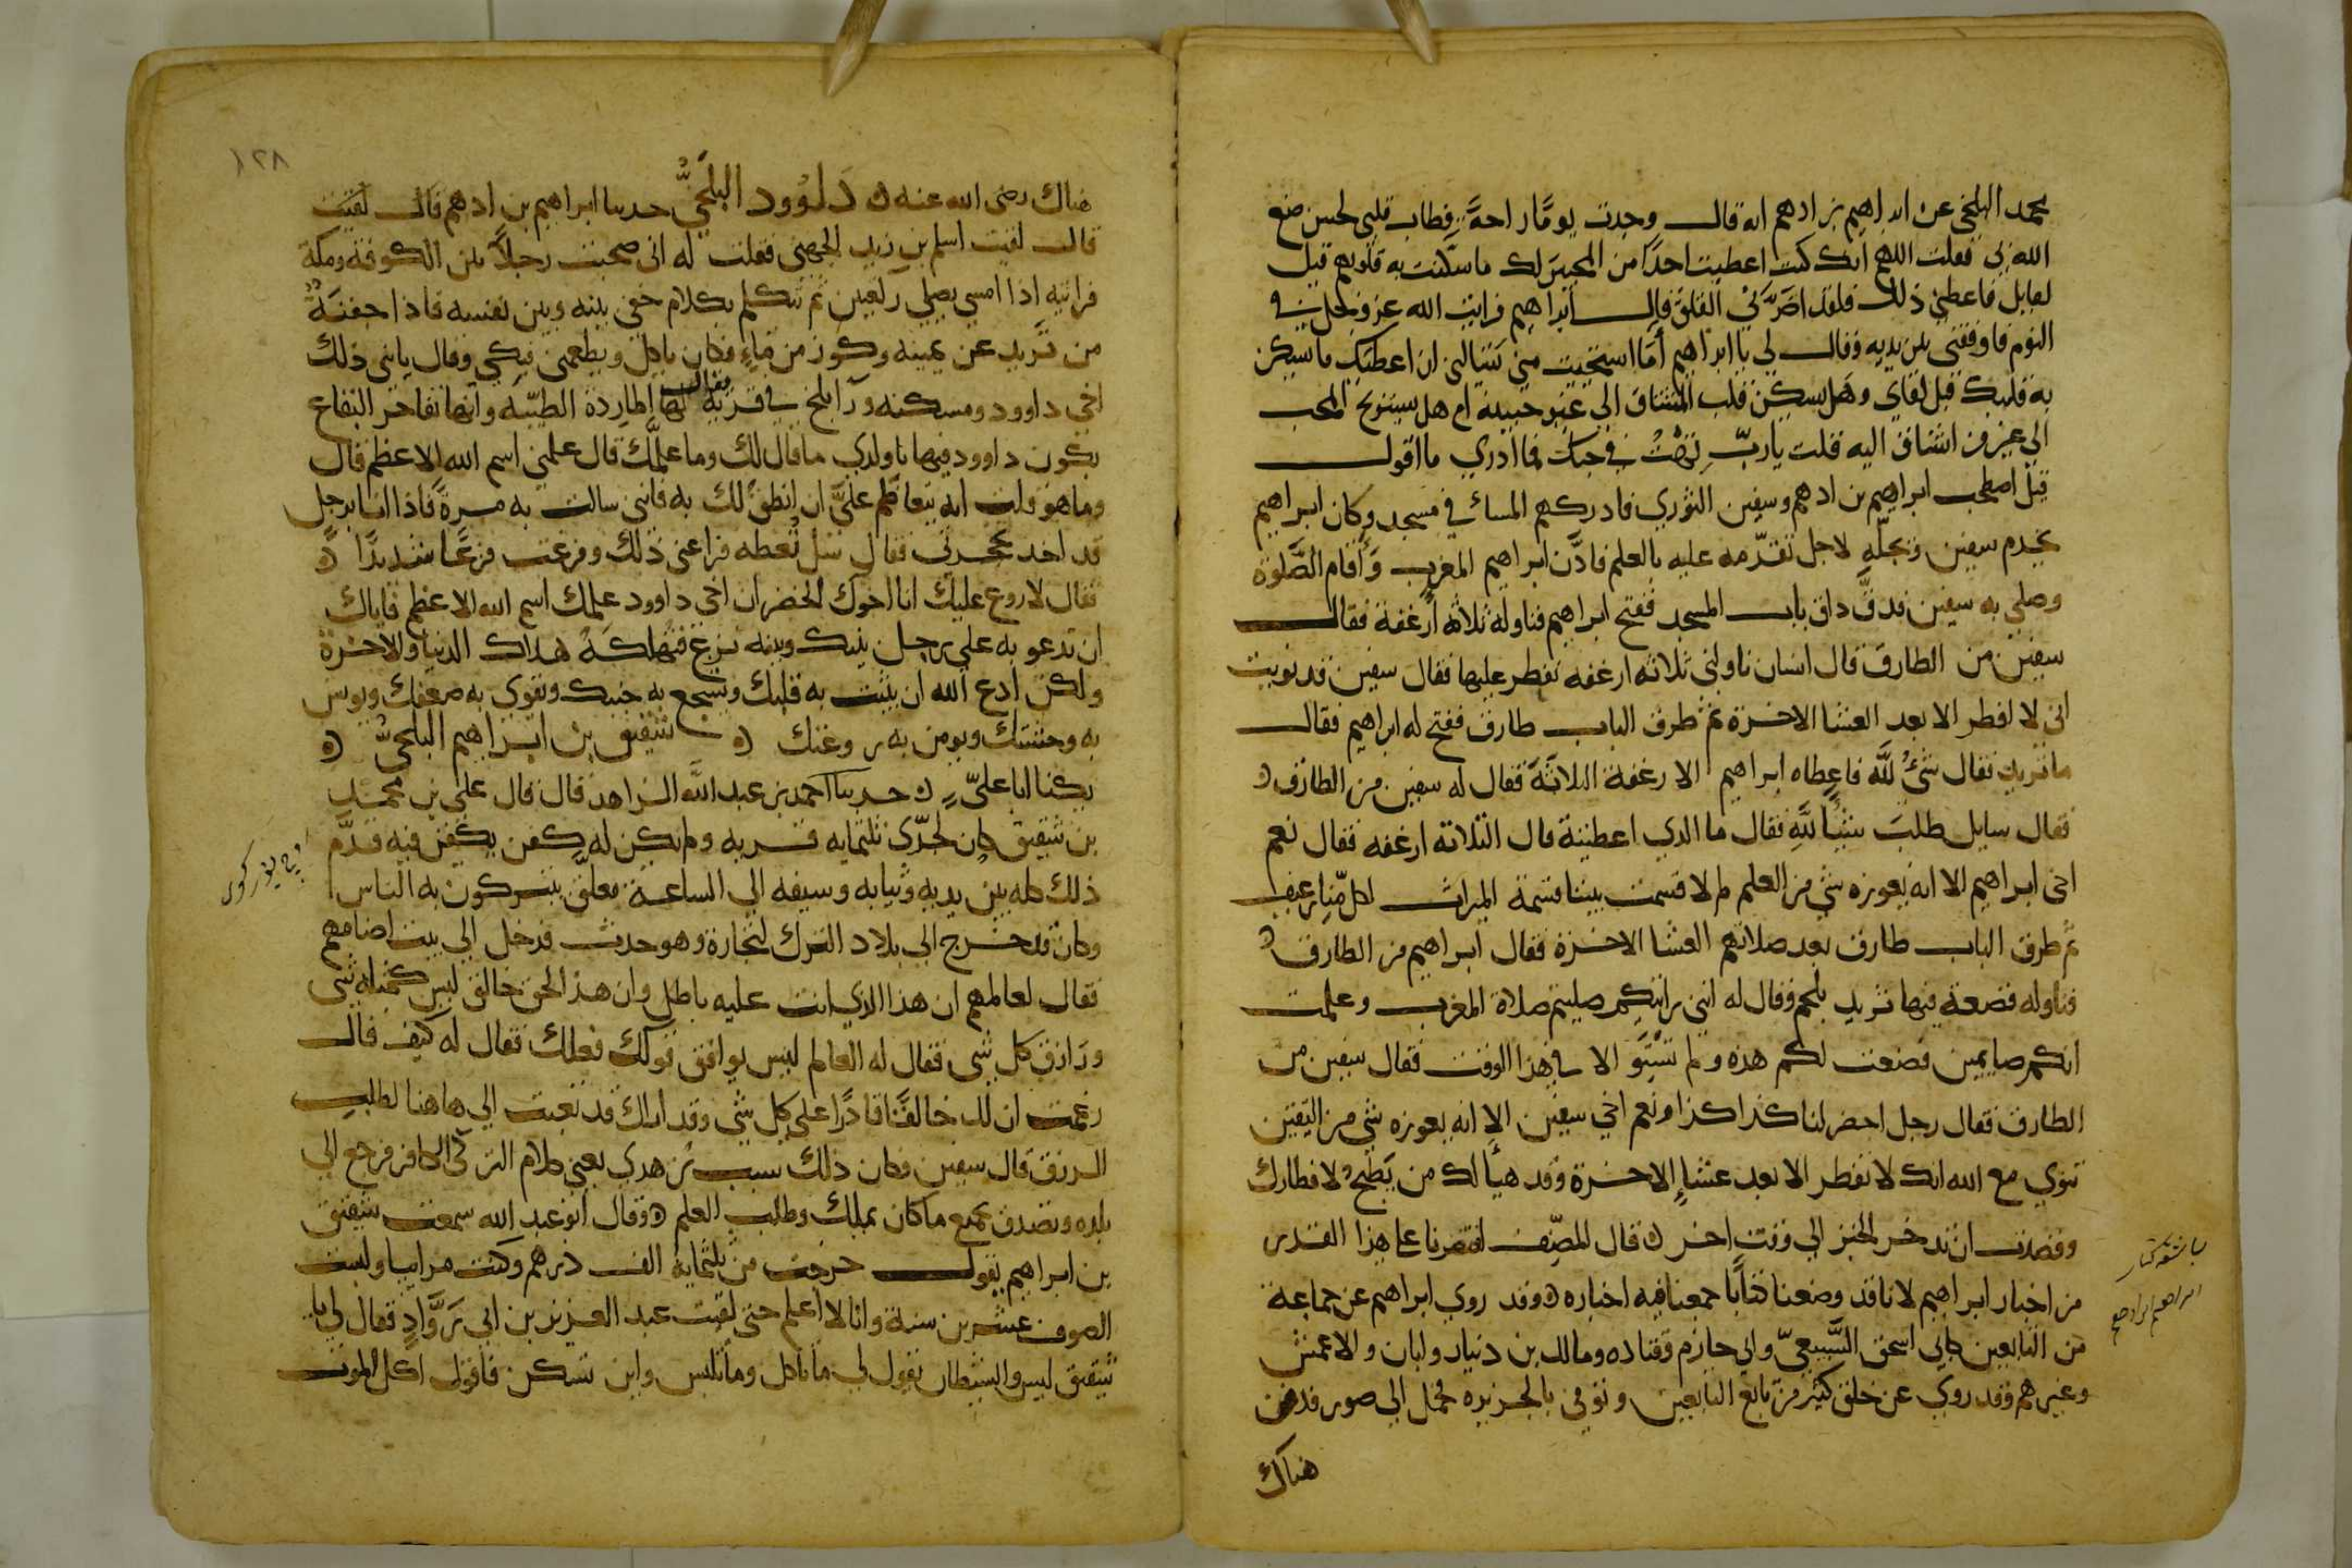 محمد البلخي عن ابراهيم بن ادهم انه قال وجدت يومًا راحةً فطاب قلبي لحسن صنع
الله بي فقلت اللهم ان كنت اعطيت احدًا من المحبين لك ما سكنت به قلوبهم قبل
لقايك فاعطني ذلك فلقد اضَرَّ بي القلق قال ابراهيم فرايت الله عز وجل في
النوم فاوقفني بين يديه وقال لي يا ابراهيم أمَا استحييت مني تسالني ان اعطيك ما يسكن
به قلبك قبل لقاي وهل يسكن قلب المشتاق الي غير حبيبه ام هل يستريح المحب
الي غير من اشتاق اليه فقلت يا ربِّ تهْتُ في حبك فما ادري ما اقول
قيل اصطحب ابراهيم بن ادهم وسفين الثوري فادركهم المسا في مسجد وكان ابراهيم
يخدم سفين ويجلّه لاجل تقدّمه عليه بالعلم فاذّن ابراهيم المغرب وَأقام الصَّلوة
وصلي به سفين فدقَّ داق باب المسجد ففتح ابراهيم فناوله ثلاثه أرغفة فقال
سفين من الطارق قال انسان ناولني ثلاثه ارغفه نفطر عليها فقال سفين قد نويت
اني لا افطر الا بعد العشا الاخرة ثم طرق الباب طارق ففتح له ابراهيم فقال
ما تريد فقال شيءٌ للّه فاعطاه ابراهيم الارغفة الثلاثَة فقال له سفين من الطارق ه
فقال سايل طلبَ شيئًا للّهِ فقال ما الذي اعطيته قال الثلاثة ارغفه فقال نعم
اخي ابراهيم الا انه يعوزه شي من العلم لم لا قسمت بيننا قسمة الميراث لكل منّا رغيف
ثم طرق الباب طارق بعد صلاتهم العشا الاخرة فقال ابراهيم من الطارق ه
فناوله قصعة فيها ثريد بلحم وقال له انني رايتكم صليتم صلاة المغرب وعلمت
انكم صايمين فصنعت لكم هذه ولم تَسْتَوِ الا في هذا الوقت فقال سفين من
الطارق فقال رجل احضر لنا كذا كذا ونعم اخي سفين الا انه يعوزه شي من اليقين
تنوي مع الله انك لا تفطر الا بعد عشاءِ الاخرة وقد هيأ لك من يَطبخ لافطارك
وقصدت ان تدخر الخبز الي وقت اخر ه قال المصنِّف اقتصرنا على هذا القدر
من اخبار ابراهيم لاننا قد وضعنا كتابًا جمعنا فيه اخباره ه وقد روي ابراهيم عن جماعة
من التابعين كابي اسحق السَّبيعيّ وابي حازم وقتاده ومالك بن دنيار وابان والاعمش
وغيرهم وقد روي عن خلق كثير من تابع التابعين وتوفي بالجزيره فحمل الي صور فدفن
هناك
ابراهيم ابن ادهم
١٢٨
هناك رضي الله عنه ه دَاوُود البلخيُّ حدثنا ابراهيم بن ادهم قال لقيت
قال لقيت اسلم بن زيد الجهني فقلت له اني صحبت رجلاً بين الكوفة ومكة
فرايته اذا امسي يصلي ركعتين ثم تكلم بكلام خفي بينه وبين نفسه فاذا جفنةٌ
من ثريد عن يمينه وكوز من ماءٍ فكان ياكل ويطعمني فبكي وقال يابني ذلك
اخي داوود ومسكنه ورآ بلخ في قرية يقال لها الماردة الطيّبه وانها تفاخر البقاع
بكون داوود فيها يا ولدي ما قال لك وما علمّك قال علمني اسم الله الاعظم قال
وما هو قلت انه يتعاظم عليَّ ان انطق لك به فانني سالت به مرةً فاذا انا برجل
قد اخذ بحجزتي فقال سل تُعطه فراعني ذلك وفزعت فزعًا شديدًا ه
فقال لا روع عليك انا اخوك الخضر ان اخي داوود علمك اسم الله الاعظم فاياك
ان تدعو به على رجل بينك وبينه نزغ فتهلكَهُ هلاك الدنيا والاخرة
ولكن ادع الله ان يثبت به قلبك ويشجع به جنبك ويقوي به ضعفك ويونس
به وحشتك ويومن به روعتك ه شقيق بن ابراهيم البلخيُّ ه
يكنا ابا عليٍّ ه حدثنا احمد بن عبد اللَّه الزاهد قال قال علي بن محمّد
بن شقيق كان لجدّي ثلثمايه قريه ولم يكن له كفن يكفن فيه قدَّم
ذلك كله بين يديه وثيابه وسيفه الي الساعة معلق يتبركون به الناس
وكان قد خرج الي بلاد الترك لتجارة وهو حدث فدخل الي بيت اصنامهم
فقال لعالمهم ان هذا الذي انت عليه باطل وان هذا الخلق خالق ليس كمثله شي
ورازق كل شي فقال له العالم ليس يوافق قولك فعلك فقال له كيف قال
زعمت ان لك خالقًا قادرًا على كل شي وقد اراك قد تعبت الي هاهنا لطلب
الرزق قال سفين فكان ذلك سبب زهدي يعني كلام التركي الكافر فرجع الي
بلده وتصدق بجميع ما كان يملك وطلب العلم ه وقال ابو عبد الله سمعت شقيق
بن ابراهيم يقول خرجت من ثلثماية الف درهم وكنت مرابيا ولبست
الصوف عشرين سنة وانا لا اعلم حتى لقيت عبد العزيز بن ابي رَوَّادٍ فقال لي يا
شقيق ليس والشيطان يقول لي ما تاكل وما تلبس واين تسكن فاقول اكل الموت